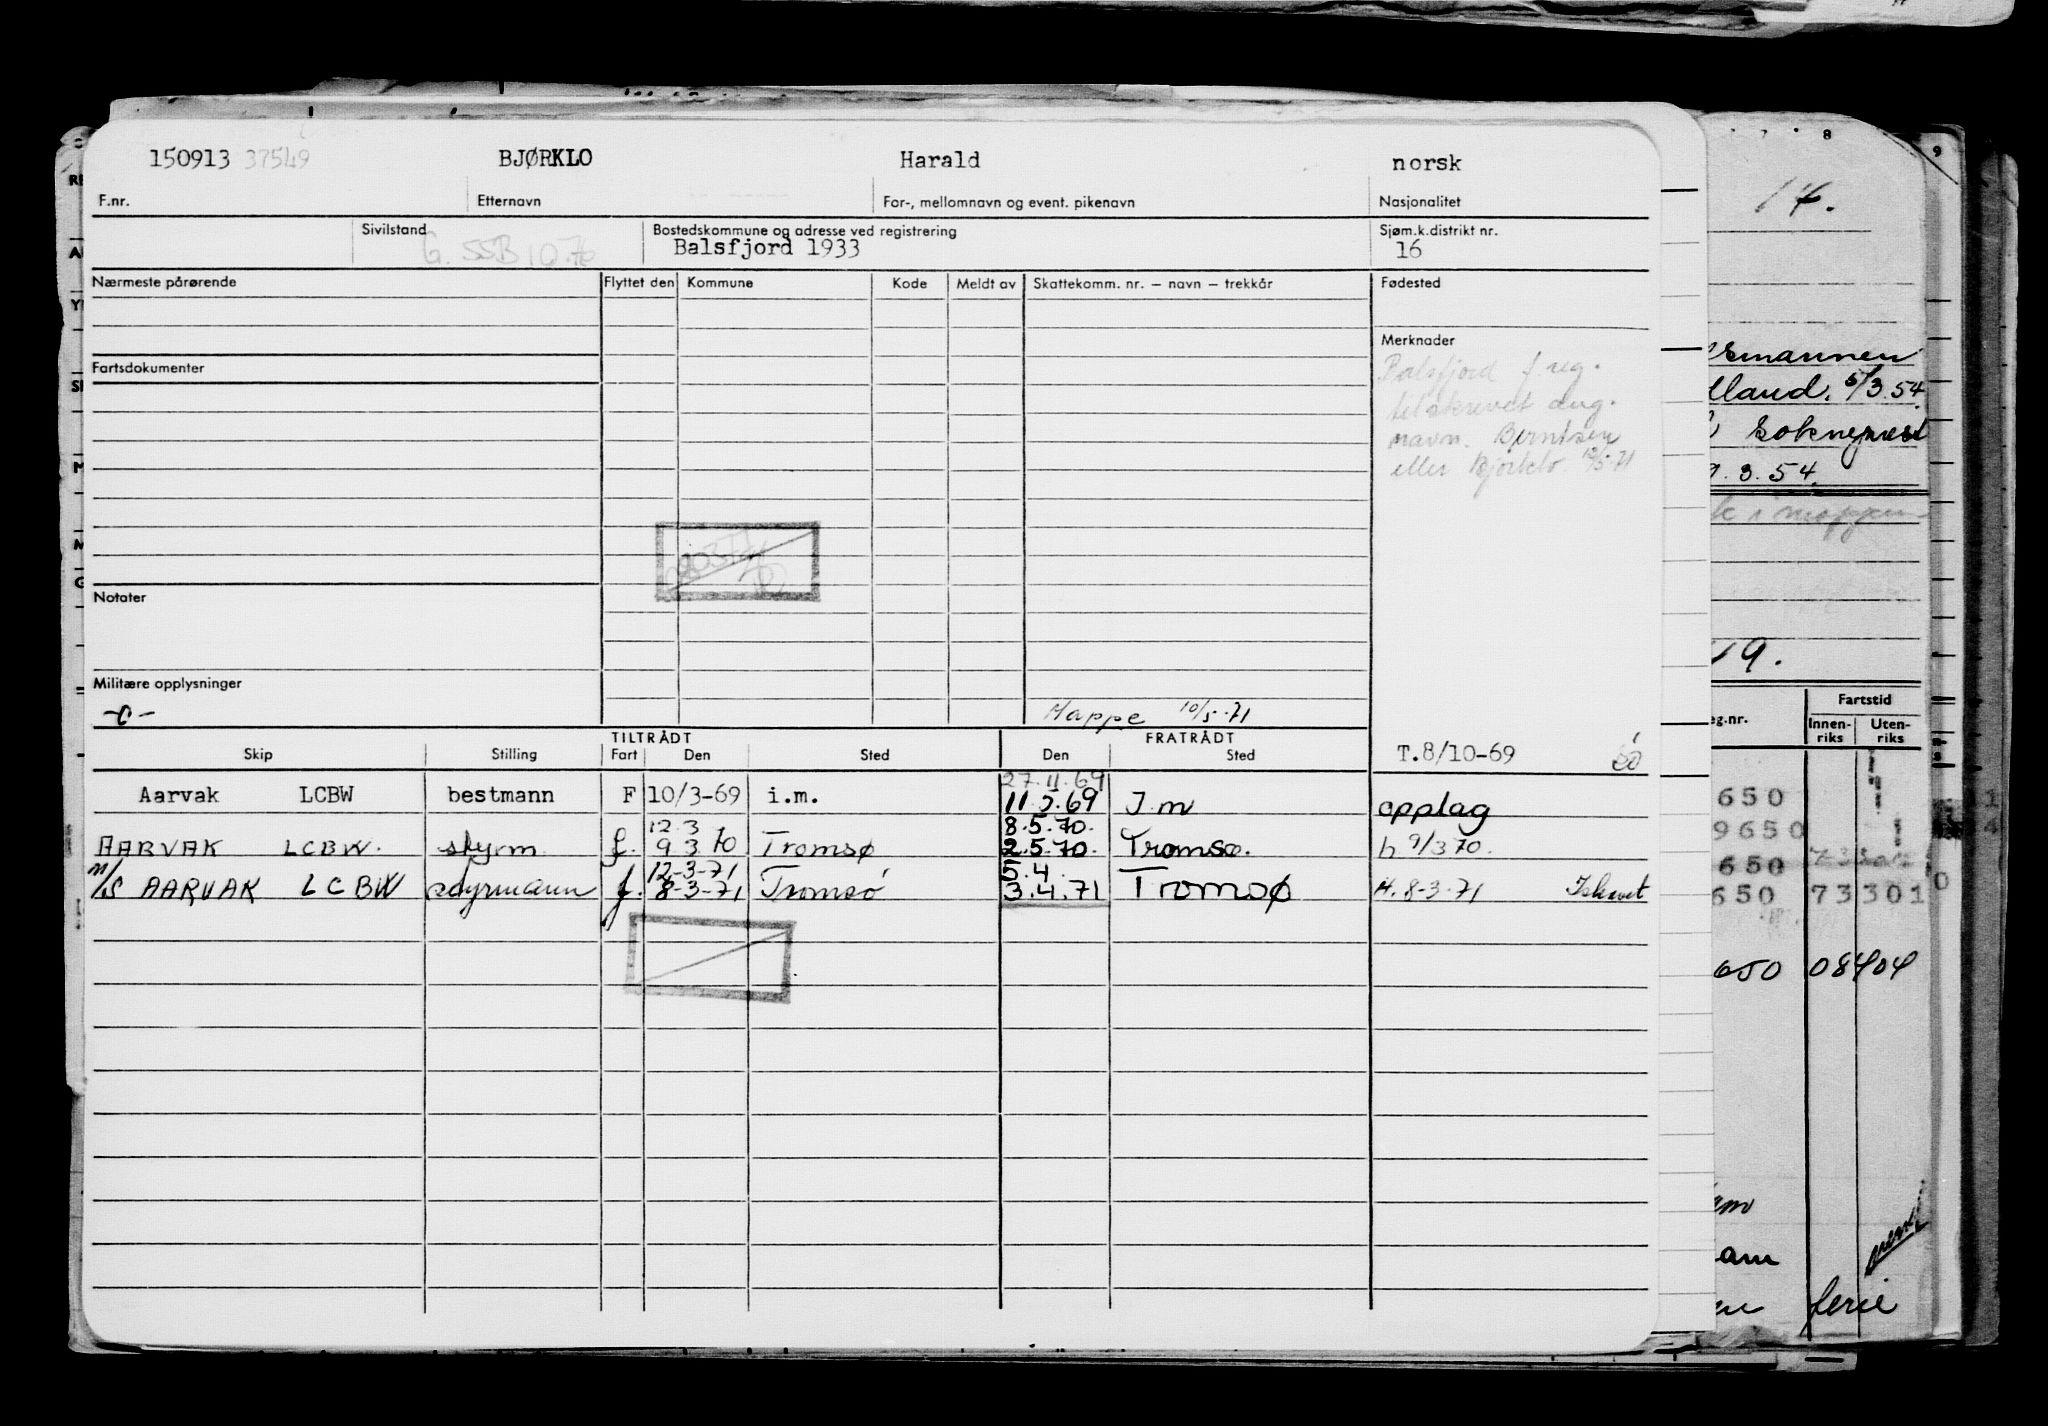 150913 37549 BJØRKLO Harald norsk
F.nr. Etternavn For-, mellomnavn og event. pikenavn Nasjonalitet
Sivilstand Bostedskommune og adresse ved registrering Sjøm.k.distrikt nr.
G. SSB 10.76 Balsfjord 1933 16
Nærmeste pårørende Flyttet den Kommune Kode Meldt av Skattekomm. nr. — navn — trekkår Fødested
Merknader
Fartsdokumenter
Balsfjord f.reg.
tilskrevet ang.
navn. Berntsen
eller Bjørklo 12/5-71
Notater
Militære opplysninger
-0-
Mappe 10/5-71
TILTRÅDT FRATRÅDT
Skip Stilling Fart Den Sted Den Sted T.8/10-69
27.11.69
Aarvak LCBW bestmann F 10/3-69 i.m. 11.5.69 I m opplag
12.3 8.5.70.
AARVAK LCBW. styrm f. 9 3 70 Tromsø 2.5.70. Tromsø. h 9/3 70.
12-3-71 5.4.
M/S AARVAK LCBW styrmann f. 8-3-71 Tromsø 3.4.71 Tromsø H. 8-3-71 Ishavet
7 8 9
14.
smannen
lland. 5/3.54.
sokneprest
9.3.54.
i mappen
19.
eg.nr. Fartstid
Innen-riks Uten-riks
650
9650
650
650 73301
650 08404
am
ferie